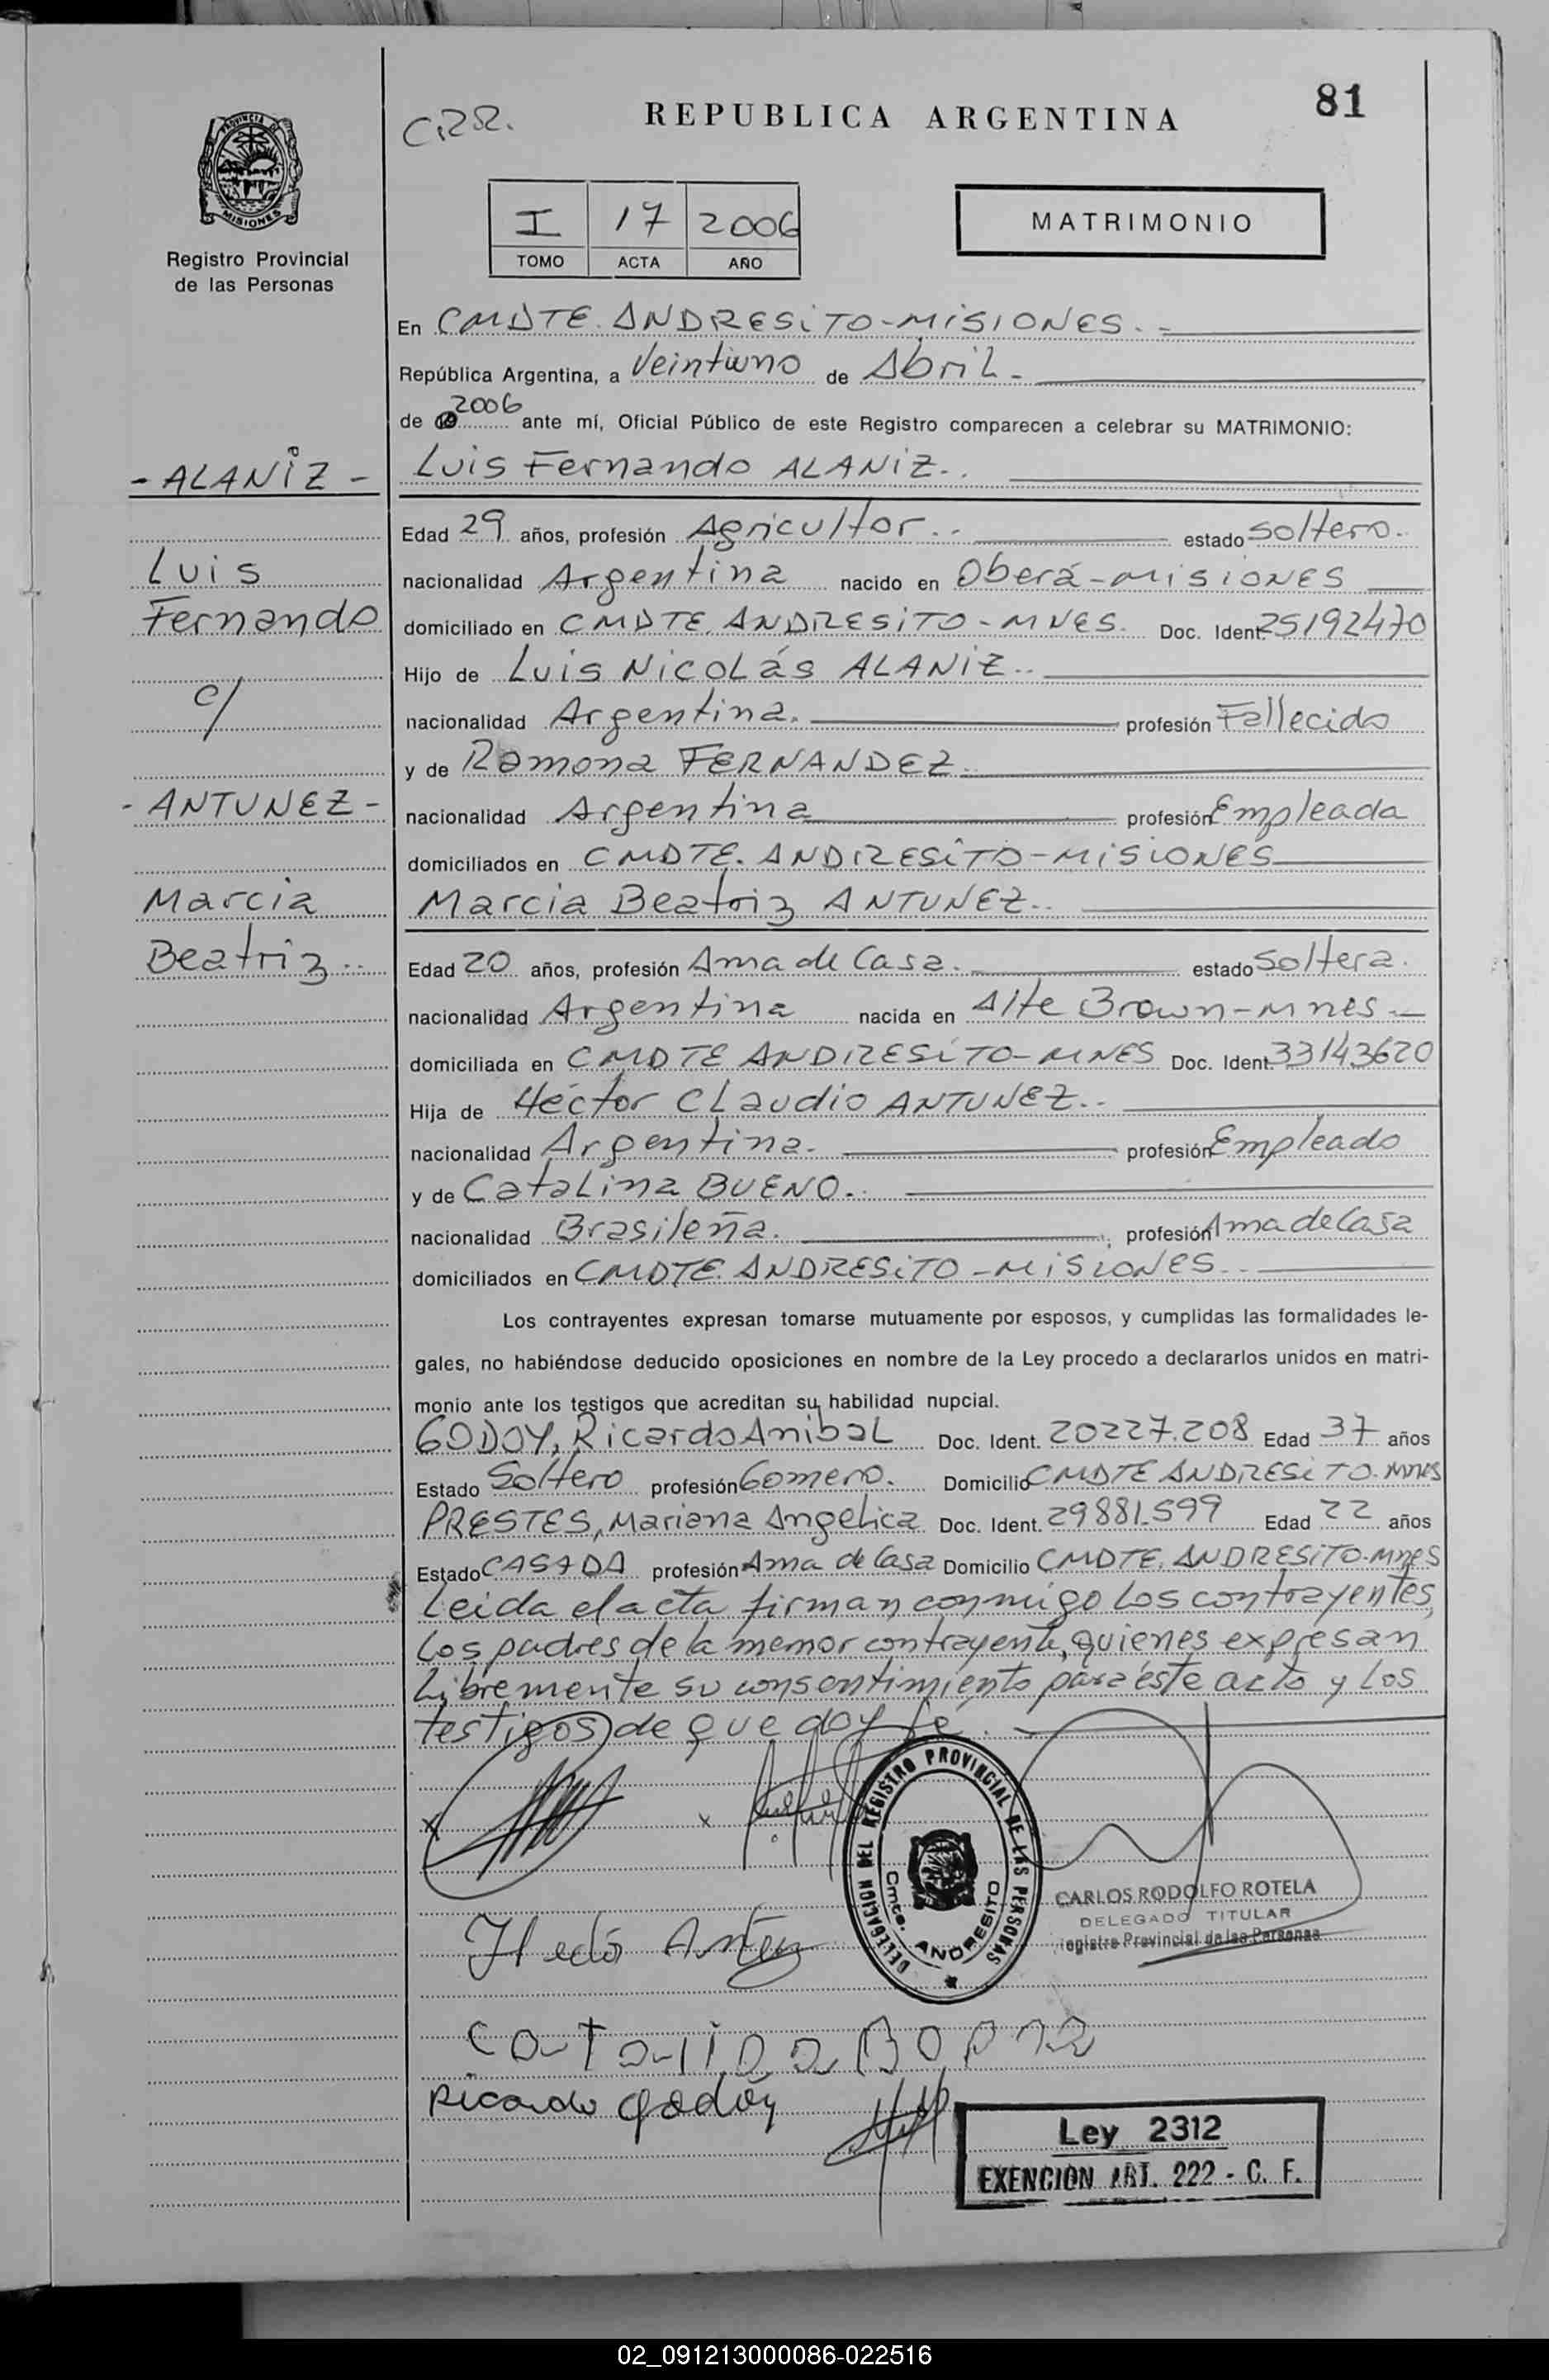 81
C.R.R.
REPUBLICA ARGENTINA
PROVINCIA DE MISIONES
Registro Provincial
de las Personas
I 17 2006
TOMO ACTA AÑO
MATRIMONIO
En CMDTE. ANDRESiTO-MiSIONES.-
República Argentina, a Veintiuno de Abril-
de 2006 ante mí, Oficial Público de este Registro comparecen a celebrar su MATRIMONIO:
- ALANiZ -
Luis
Fernando
c/
- ANTUNEZ -
Marcia
Beatriz..
Luis Fernando ALANiZ..
Edad 29 años, profesión Agricultor.. estado Soltero.
nacionalidad Argentina nacido en Oberá-MISIONES
domiciliado en CMDTE. ANDRESiTO-MNES. Doc. Ident. 25192470
Hijo de Luis NicoLás ALANiZ..
nacionalidad Argentina. profesión Fallecido
y de Ramona FERNANDEZ..
nacionalidad Argentina profesión Empleada
domiciliados en CMDTE. ANDRESiTO-MiSIONES
Marcia Beatriz ANTUNEZ..
Edad 20 años, profesión Ama de Casa. estado Soltera.
nacionalidad Argentina nacida en Alte Brown-Mnes-
domiciliada en CMDTE ANDRESiTO-MNES Doc. Ident. 33143620
Hija de Héctor CLaudio ANTUNEZ..
nacionalidad Argentina. profesión Empleado
y de CataLina BUENO..
nacionalidad Brasileña. profesión Ama de Casa
domiciliados en CMDTE. ANDRESiTO-MiSIONES..
Los contrayentes expresan tomarse mutuamente por esposos, y cumplidas las formalidades le-
gales, no habiéndose deducido oposiciones en nombre de la Ley procedo a declararlos unidos en matri-
monio ante los testigos que acreditan su habilidad nupcial.
GODOY, Ricardo AnibaL Doc. Ident. 20227.208 Edad 37 años
Estado Soltero profesión Gomero. Domicilio CMDTE ANDRESiTO-Mnes
PRESTES, Mariana Angelica Doc. Ident. 29881.599 Edad 22 años
Estado CASADA profesión Ama de Casa Domicilio CMDTE. ANDRESiTO-Mnes
Leida el acta firman conmigo Los contrayentes,
Los padres de la menor contrayente, quienes expresan
Libremente su consentimiento para éste acto y Los
testigos, de que doy fé.
DELEGACION DEL REGISTRO PROVINCIAL DE LAS PERSONAS
Cmte. ANDRESITO
CARLOS RODOLFO ROTELA
DELEGADO TITULAR
Registro Provincial de las Personas
Ricardo Godoy
Ley 2312
EXENCION ART. 222 - C. F.
02_091213000086-022516